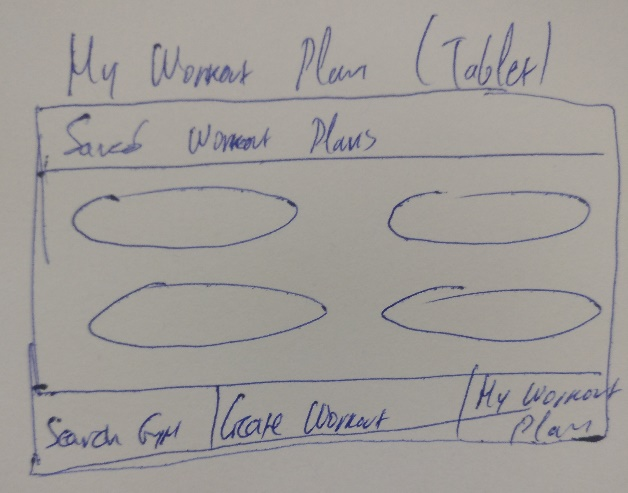 My Workout Plan (Tablet)
Saved Workout Plans
Search Gym
Create Workout
My Workout
Plan